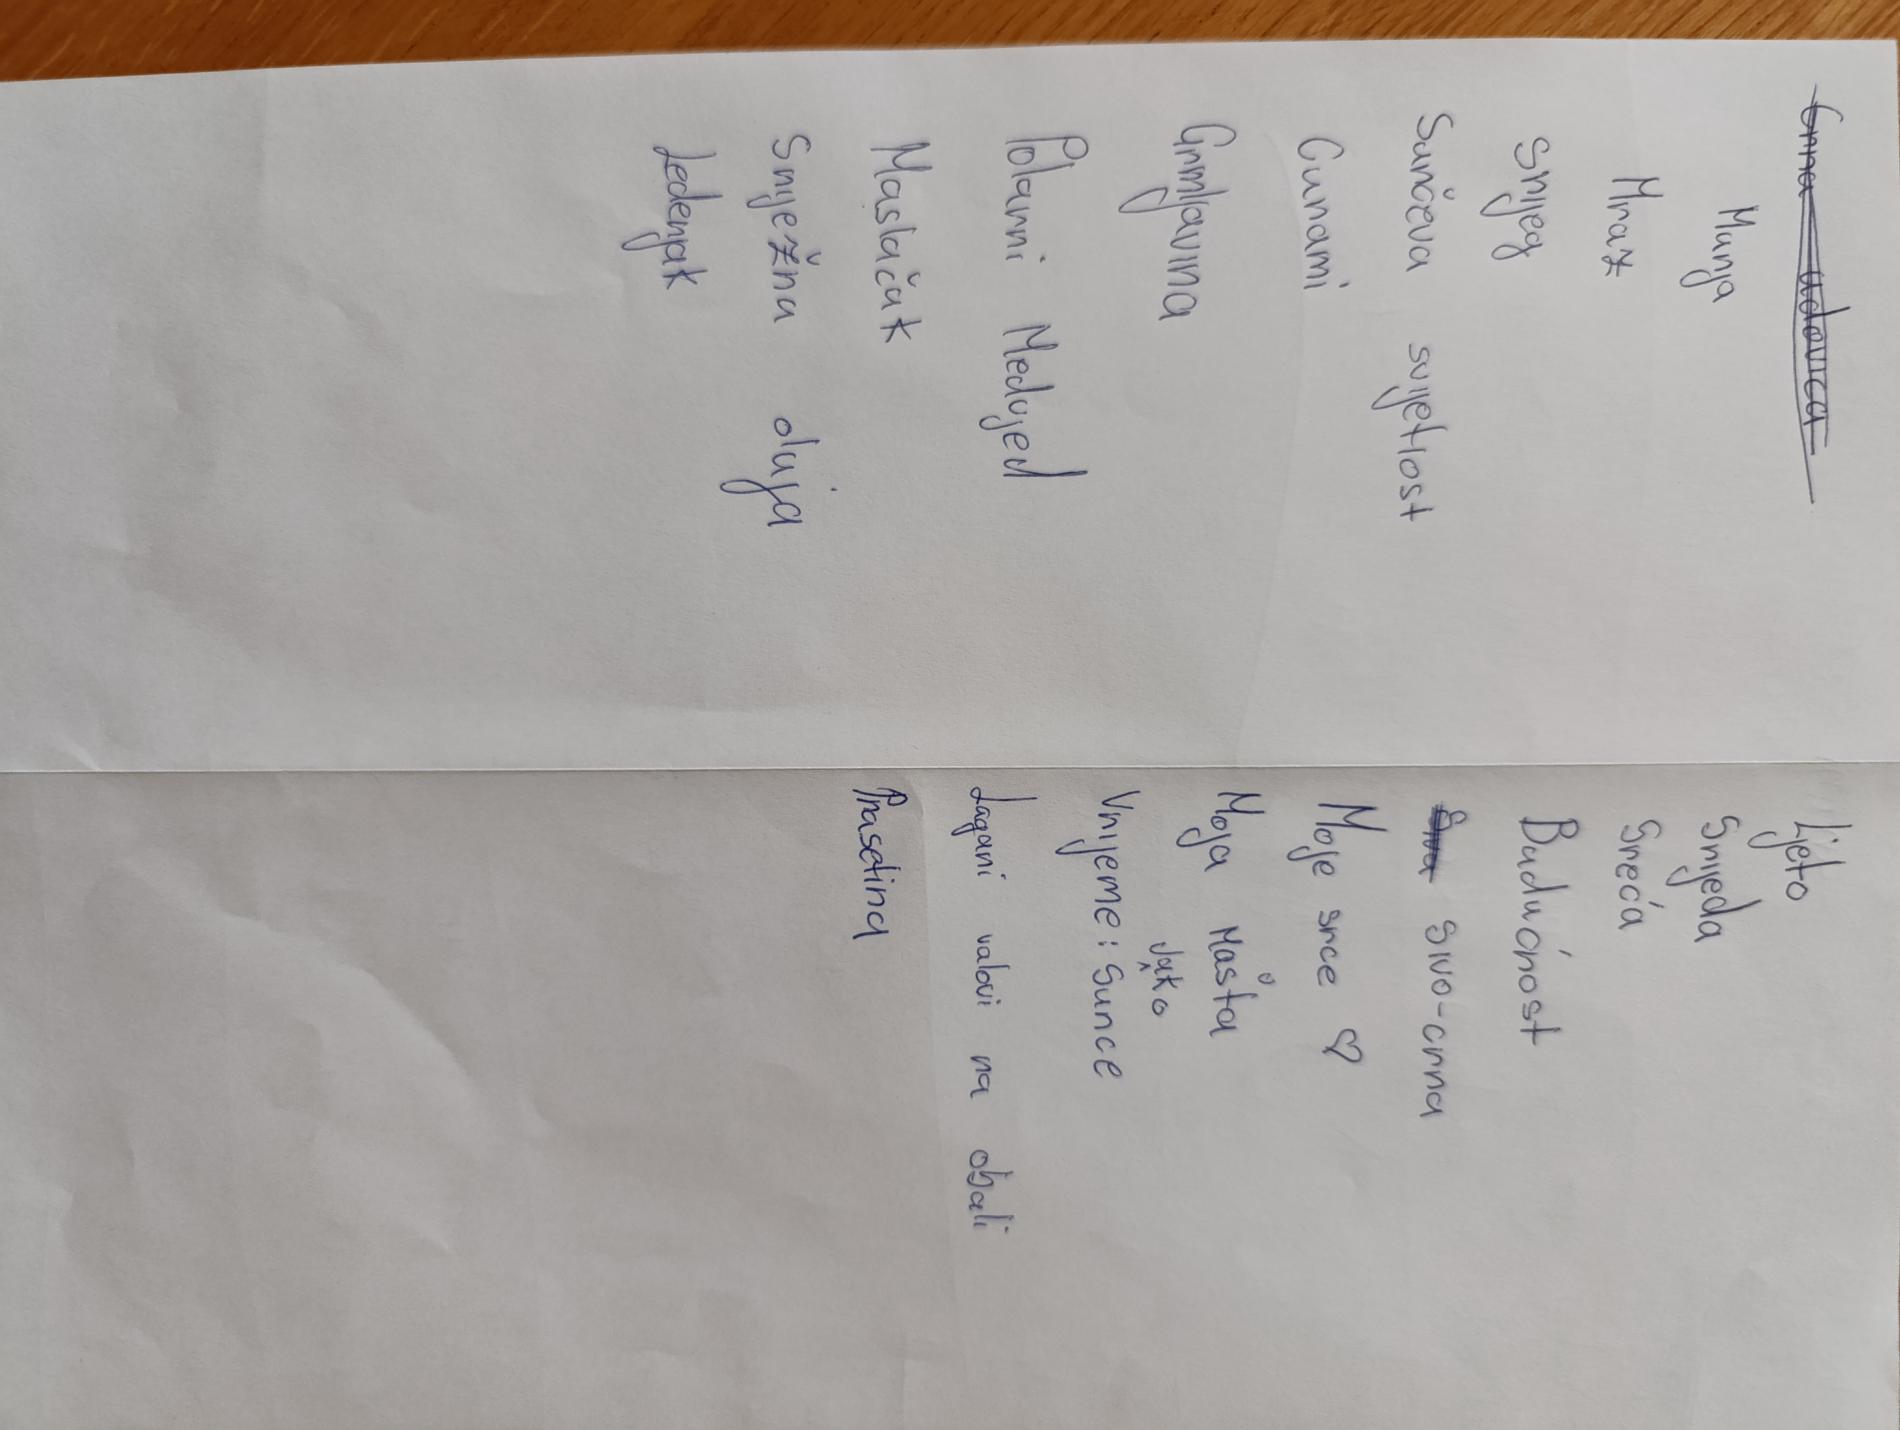 Crna udovica
Munja
Mraz
Snijeg
Sunčeva svijetlost
Cunami
Grmljavina
Polarni Medvjed
Maslačak
Snježna oluja
Ledenjak
Ljeto
Smijeđa
Sreća
Budućnost
Siva sivo-crna
Moje srce ♡
Moja Mašta
Jako
Vrijeme: Sunce
Lagani valovi na obali
Prasetina